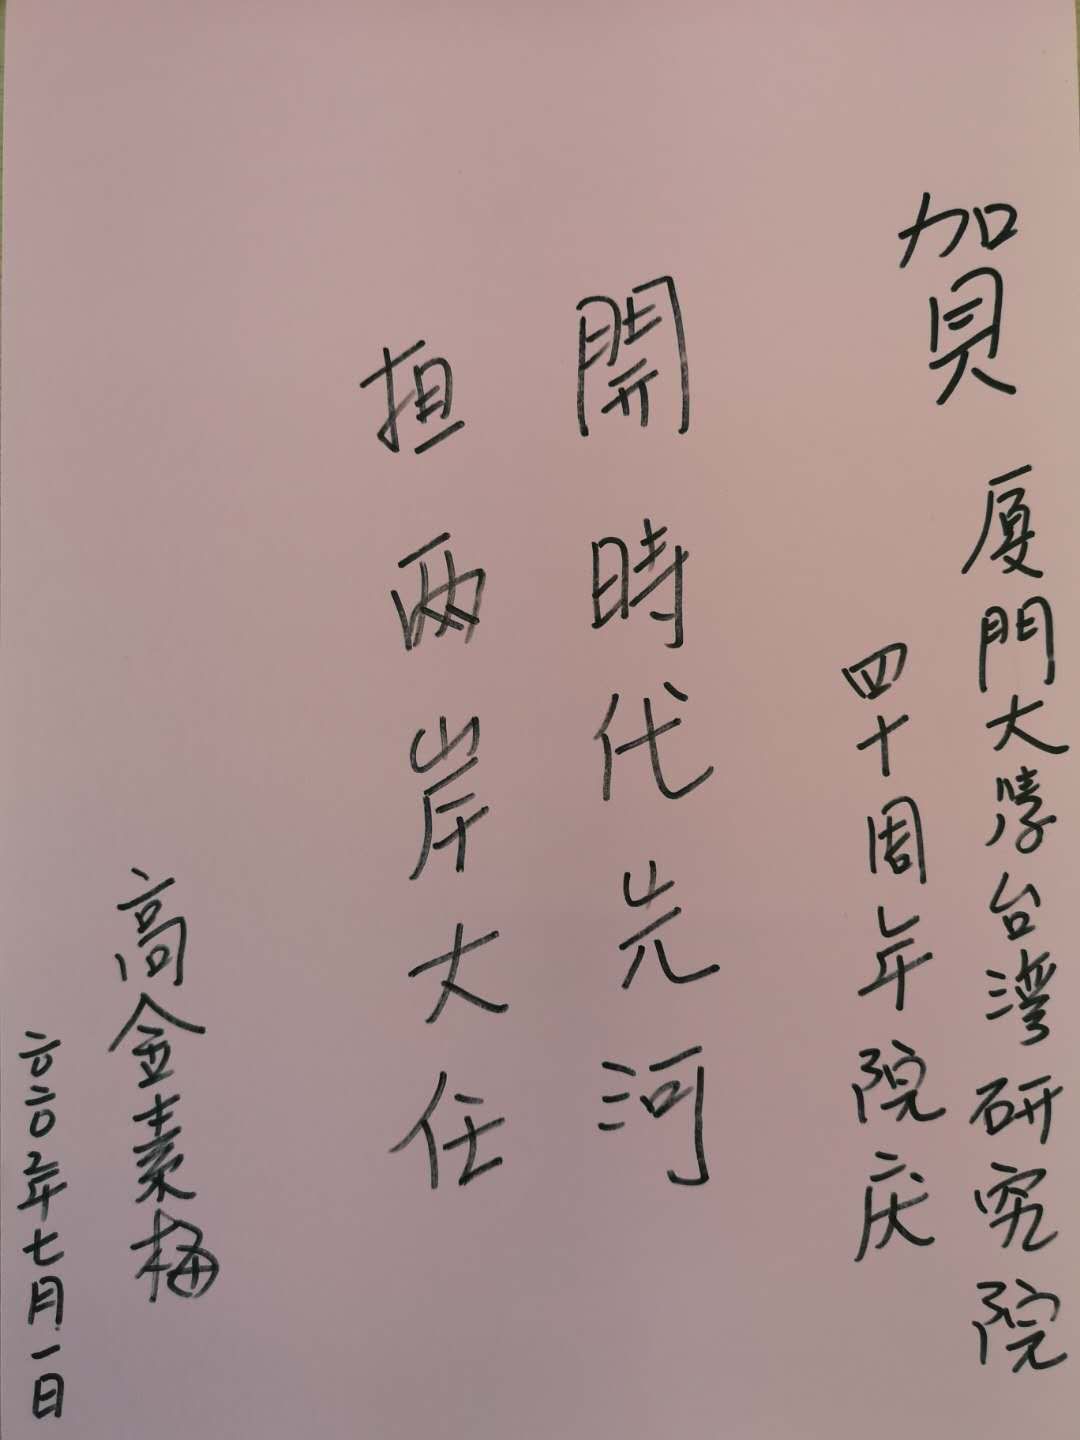 賀 厦門大學台湾研究院
四十周年院庆
開時代先河
担两岸大任
高金素梅
二〇二〇年七月一日